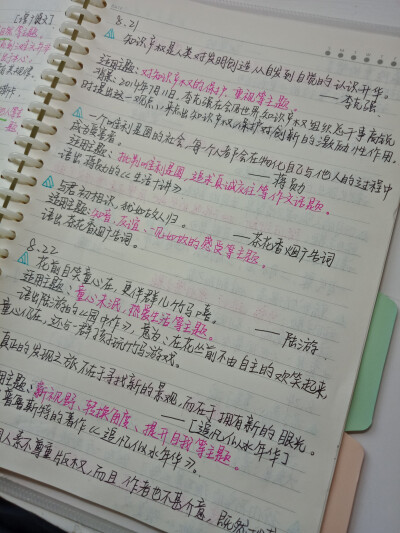 8.21
知识产权是人类对发明创造从自发到自觉的认识升华。
——李克强
适用主题:对知识产权的保护、重视等主题。
背景:2014年7月11日,李克强在会见世界知识产权组织总干事高锐
时提出这一观点,来点出知识产权保护对创新的激励性作用。
一个唯利是图的社会,每个人都会在物化自己与他人的过程中
——蒋勋
适用主题:批判唯利是图,追求真诚交往等作文话题。
语出蒋勋的《生活十讲》
与君初相识,犹如故人归。
——茶花香烟广告词
适用主题:知音、友谊、一见如故的感受等主题。
语出茶花香烟广告词。
8.22
花前自笑童心在,更伴群儿竹马嬉。
——陆游
适用主题:童心未泯,热爱生活等主题。
语出陆游的《园中作》,意为:在花丛前不由自主的欢笑起来,
童心仍在,还与一群孩子玩竹马游戏。
真正的发现之旅不在于寻找新的景观,而在于拥有新的眼光。
——[追忆似水年华]
用主题:新视野、转换角度、提升自我等主题。
普鲁斯特的著作《追忆似水年华》。
人素不尊重版权,而且作者也不甚介意,既然